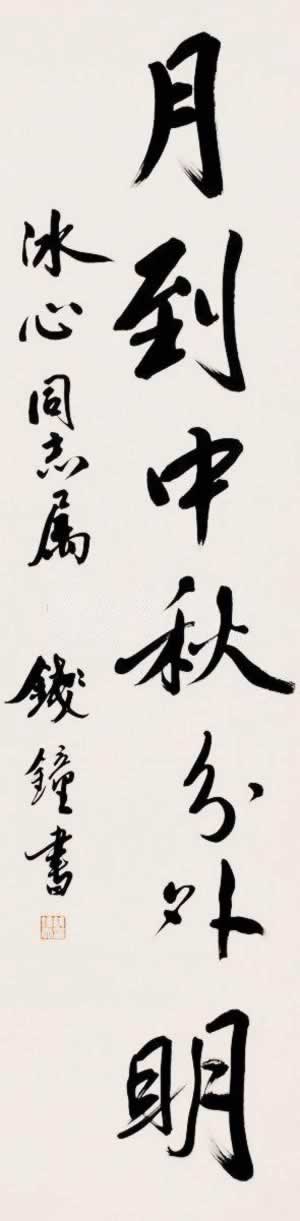 月到中秋分外明
冰心同志属 錢鐘書